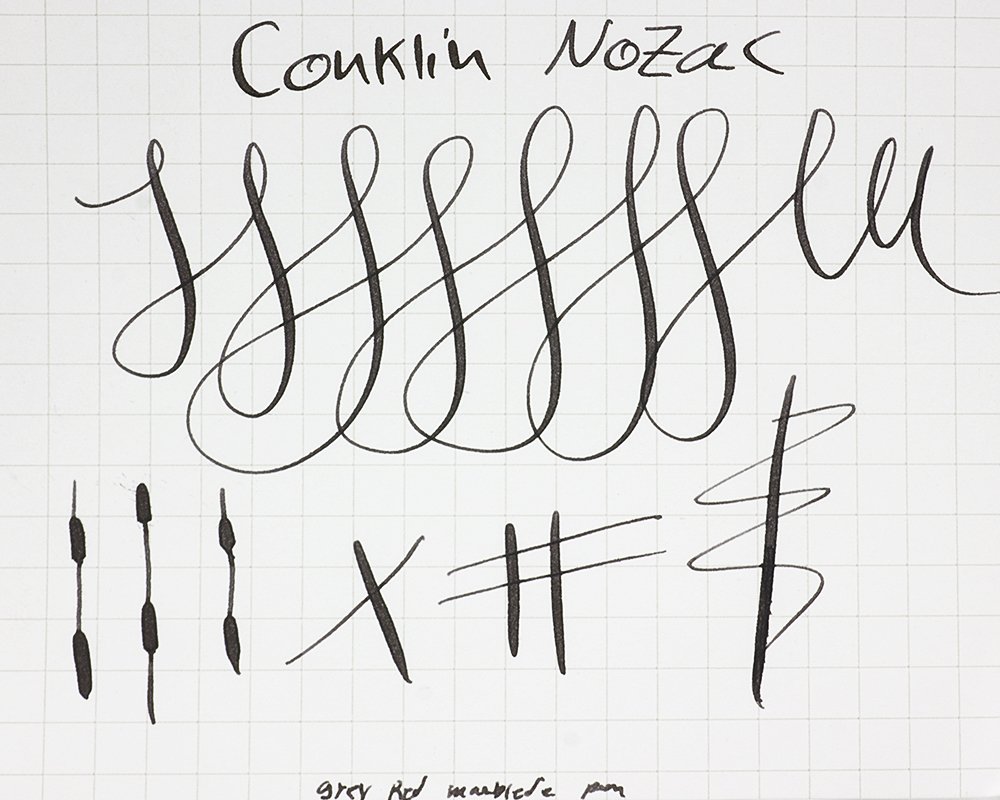 Conklin Nozac
grey Red marblede pen